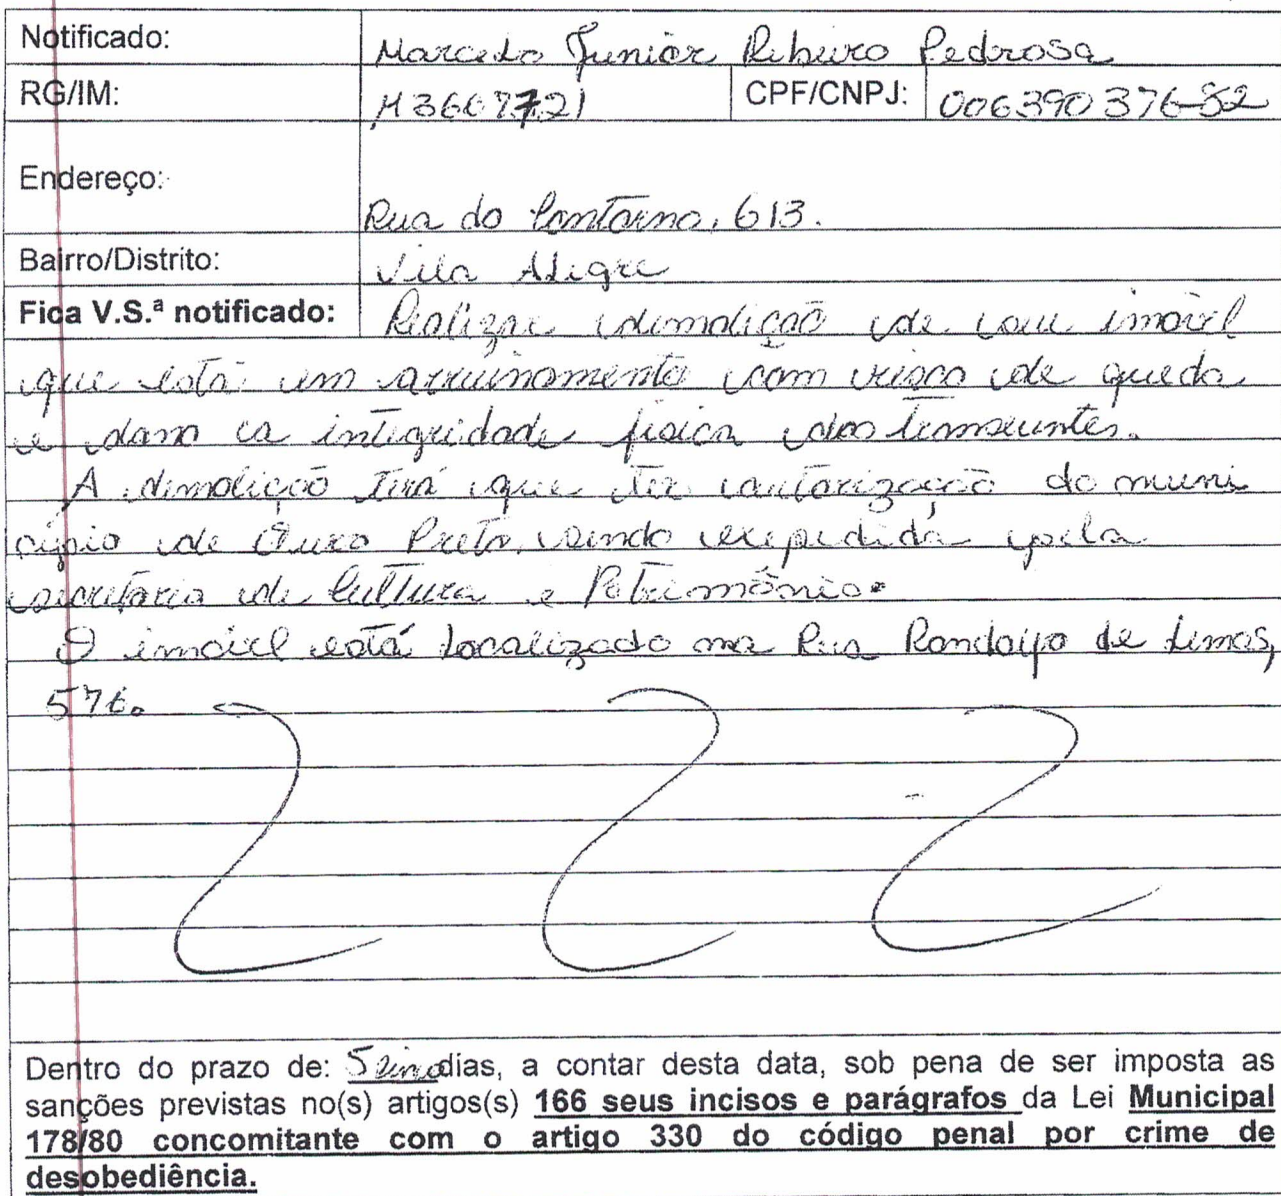 Notificado: Marcelo Junior Ribeiro Pedrosa
RG/IM: M3607721 CPF/CNPJ: 006390376-82
Endereço: Rua do Contorno, 613.
Bairro/Distrito: Vila Alegre
Fica V.S.ª notificado: Realizar demolição de seu imóvel
que está em arruinamento com risco de queda
e dano a integridade física dos transeuntes.
A demolição terá que ter autorização do muni
cípio de Ouro Preto, sendo expedida pela
secretaria de Cultura e Patrimônio.
O imóvel está localizado na Rua Randolfo de Lemos,
576.
Dentro do prazo de: 5 cinco dias, a contar desta data, sob pena de ser imposta as
sanções previstas no(s) artigos(s) 166 seus incisos e parágrafos da Lei Municipal
178/80 concomitante com o artigo 330 do código penal por crime de
desobediência.